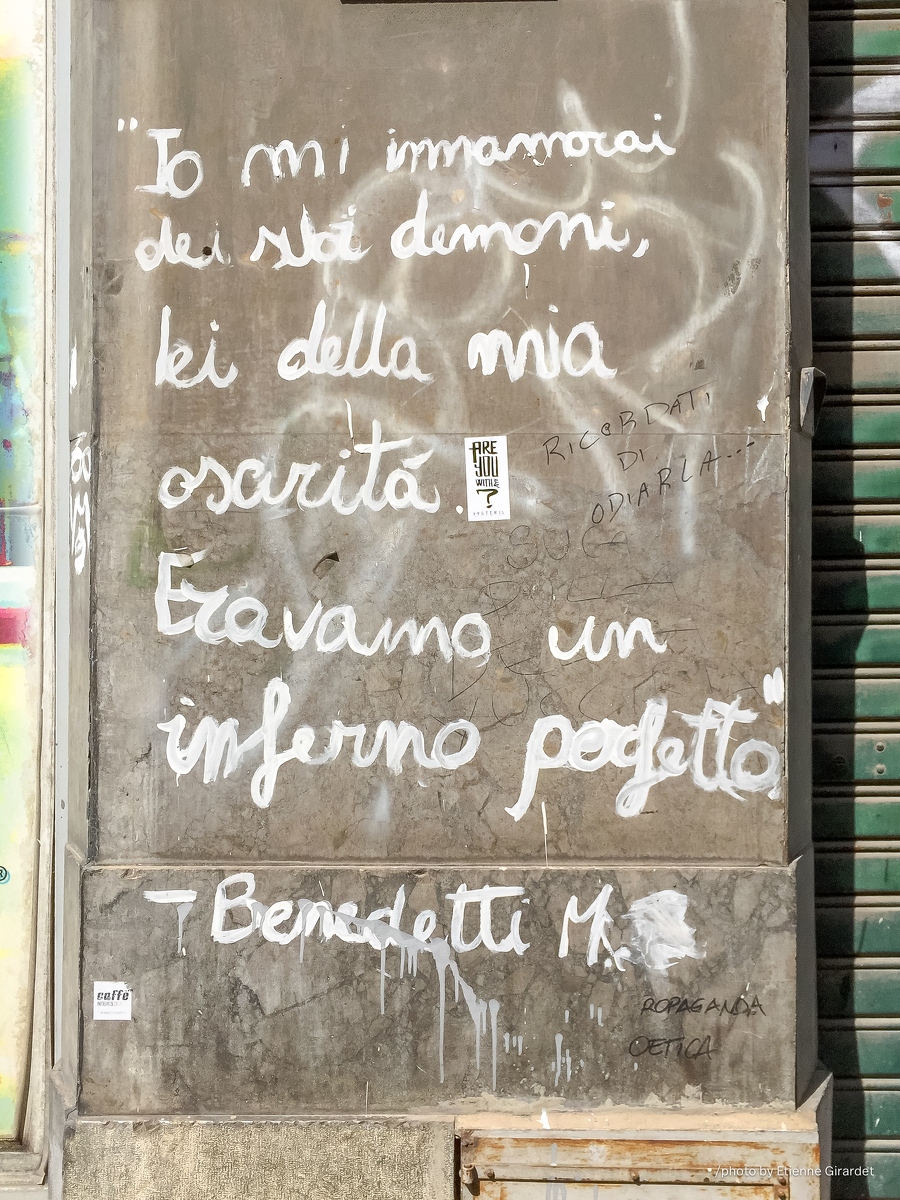 "Io mi innamorai
dei suoi demoni,
lei della mia
oscurità.
ARE
YOU
WITH
?
RICORDATI
DI
ODIARLA...
Eravamo un
inferno perfetto"
- Benedetti M.
caffè
ROPAGANDA
OETICA
/photo by Etienne Girardet